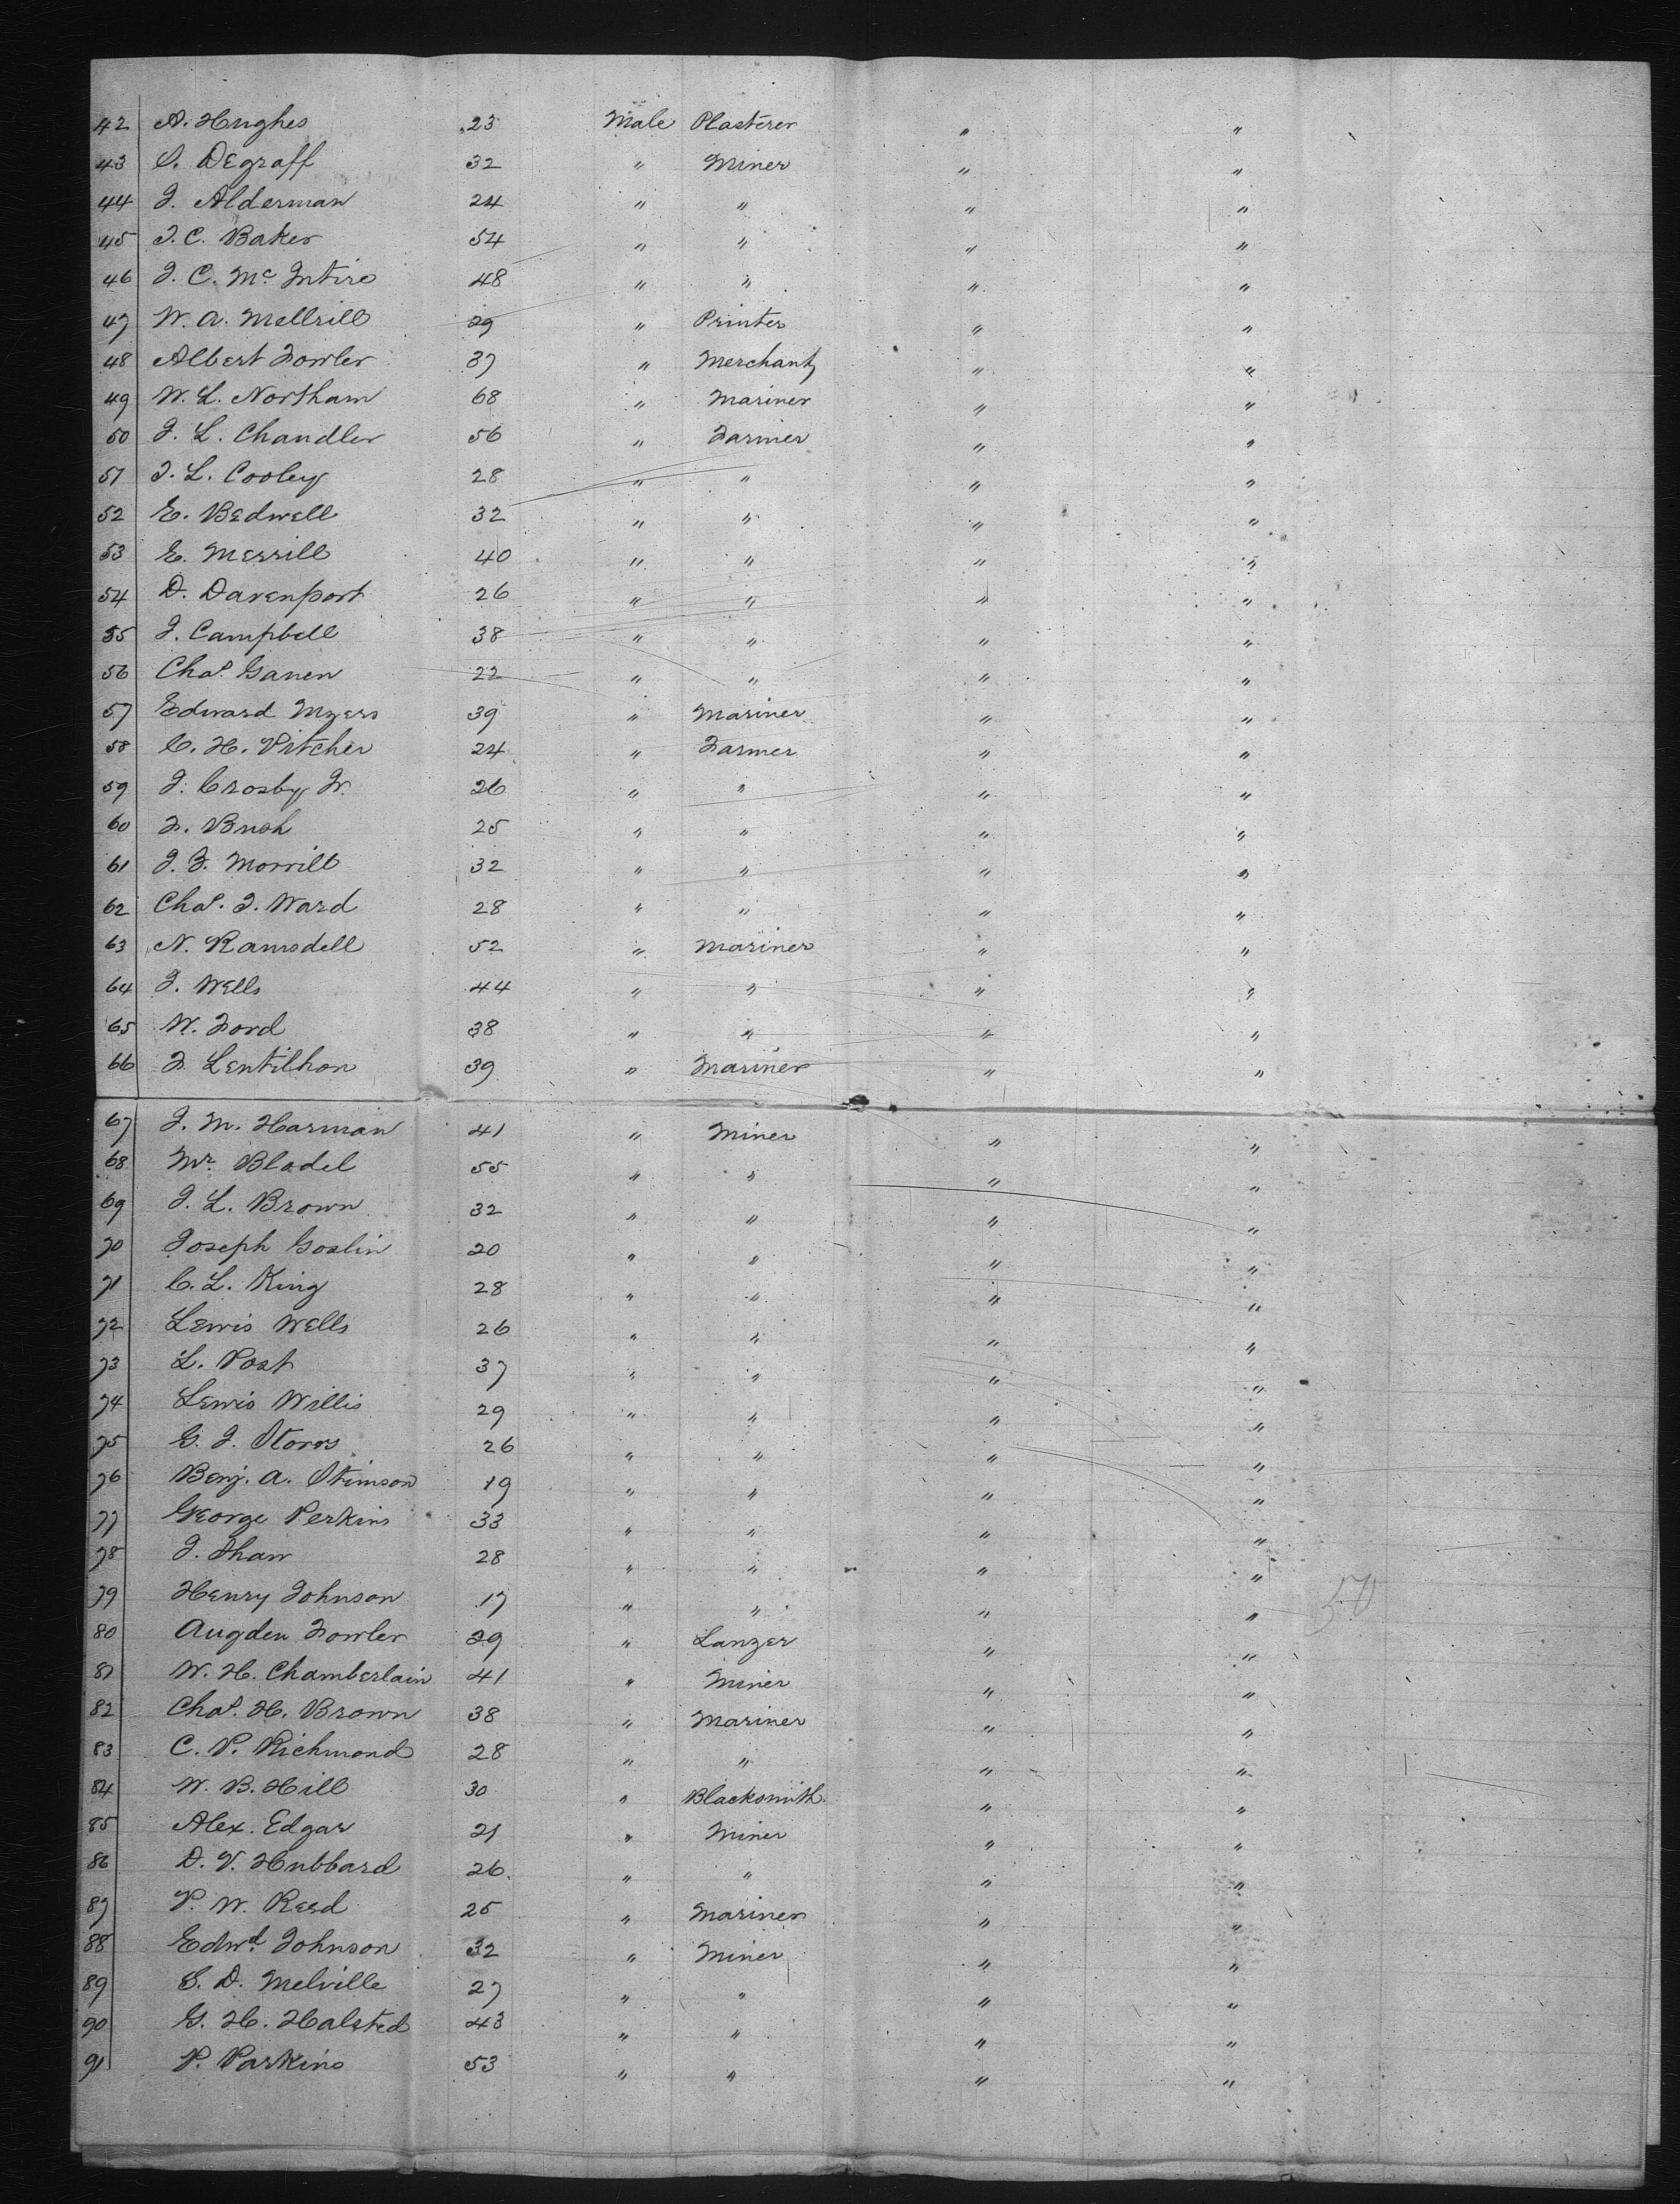 42 A. Hughes 23 Male Plasterer " "
43 S. Degraff 32 " Miner " "
44 J. Alderman 24 " " " "
45 J. C. Baker 54 " " " "
46 J. C. Mc Intire 48 " " " "
47 W. A. Mellrill 29 " Printer " "
48 Albert Fowler 37 " Merchant " "
49 W. L. Northam 68 " Mariner " "
50 J. L. Chandler 56 " Farmer " "
51 J. L. Cooley 28 " " " "
52 E. Bedwell 32 " " " "
53 E. Merrill 40 " " " "
54 D. Davenport 26 " " " "
55 J. Campbell 38 " " " "
56 Chas. Ganen 22 " " " "
57 Edward Myers 39 " Mariner " "
58 C. H. Pitcher 24 " Farmer " "
59 J. Crosby Jr. 26 " " " "
60 F. Bush 25 " " " "
61 J. F. Morrill 32 " " " "
62 Chas. J. Ward 28 " " " "
63 N. Ramsdell 52 " Mariner " "
64 J. Wells 44 " " " "
65 W. Ford 38 " " " "
66 F Lentilhon 39 " Mariner " "
67 J. M. Harman 41 " Miner " "
68 Mr. Bladel 55 " " " "
69 J. L. Brown 32 " " " "
70 Joseph Goslin 20 " " " "
71 C. L. King 28 " " " "
72 Lewis Wells 26 " " " "
73 L. Post 37 " " " "
74 Lewis Willis 29 " " " "
75 G. J. Storrs 26 " " " "
76 Benj. A. Stimson 19 " " " "
77 George Perkins 33 " " " "
78 J. Shaw 28 " " " "
79 Henry Johnson 17 " " " "
80 Augden Fowler 29 " Lanzer " "
81 W. H. Chamberlain 41 " Miner " "
82 Chas. H. Brown 38 " Mariner " "
83 C. P. Richmond 28 " " " "
84 W. B. Hill 30 " Blacksmith " "
85 Alex. Edgar 21 " Miner " "
86 D. V. Hubbard 26. " " " "
87 P. W. Reed 25 " Mariner " "
88 Edwd. Johnson 32 " Miner " "
89 S. D. Melville 27 " " " "
90 G. H. Halsted 43 " " " "
91 P. Parkins 53 " " " "